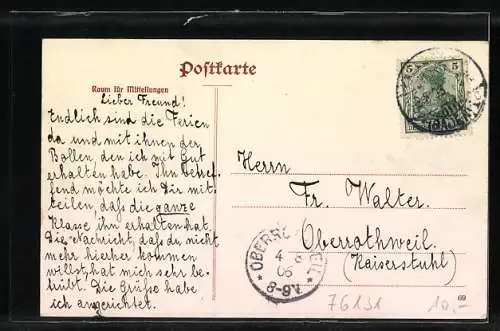 Postkarte
Raum für Mitteilungen
Lieber Freund!
Endlich sind die Ferien
da und mit ihnen der
Bollen, den ich mit Gut
erhalten habe. Ihn betref-
fend möchte ich Dir mit-
teilen, daß die ganze
Klasse ihn erhalten hat.
Die Nachricht, daß du nicht
mehr hierher kommen
willst, hat mich sehr be-
trübt. Die Grüße habe
ich angerichtet.
5 5
Herrn
Fr. Walter.
Oberrothweil.
(Kaiserstuhl)
4 8
06
8-9V
76131
10,-
69